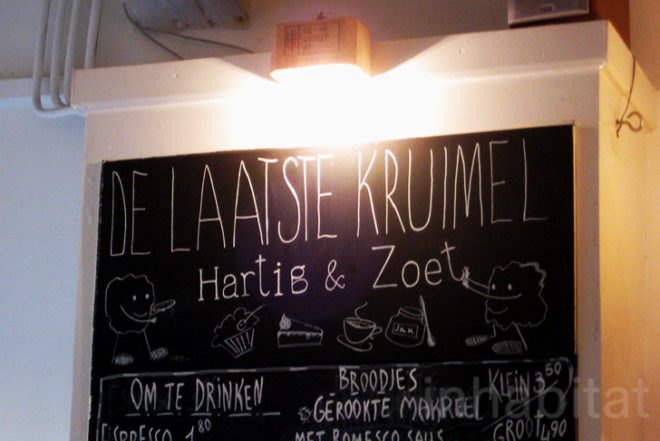 DE LAATSTE KRUIMEL
Hartig & Zoet
Jam
OM TE DRINKEN
ESPRESSO 1.80
BROODJES KLEIN 3.50
GEROOKTE MAKREEL GROOT 4,90
MET ROMESCO SAUS
inhabitat